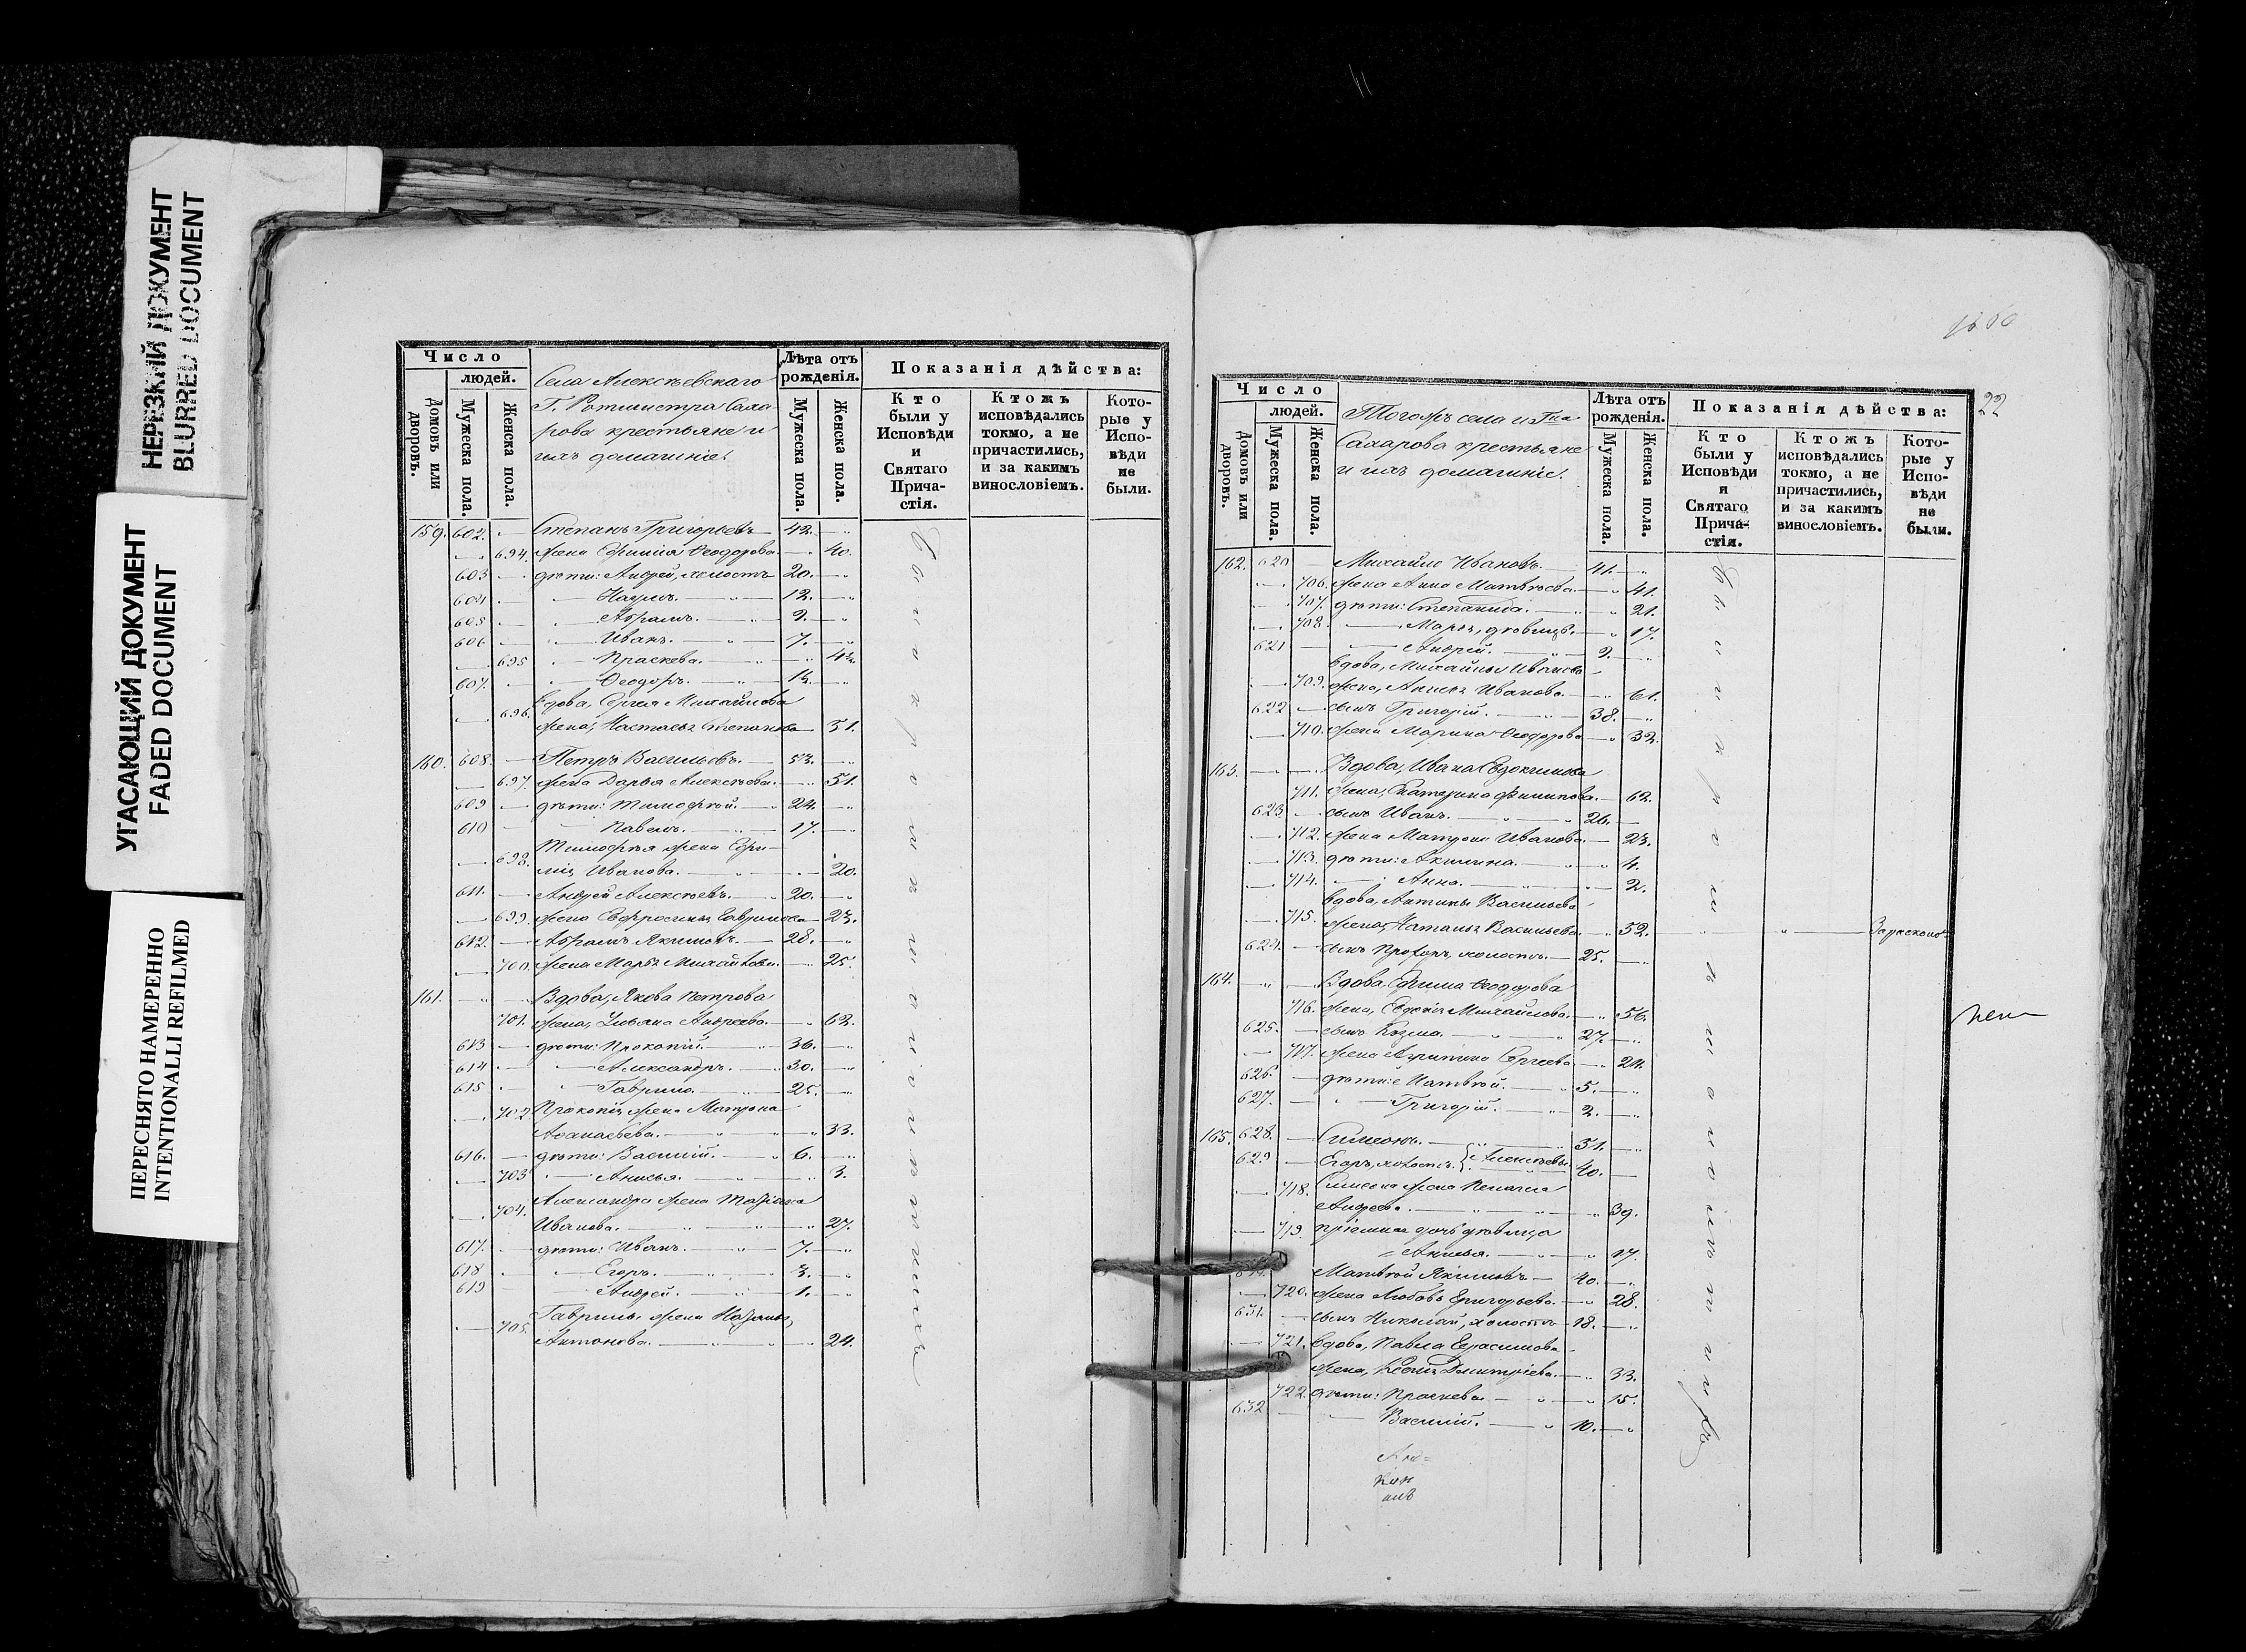 НЕРЕЗКИЙ ДОКУМЕНТ
BLURRED DOCUMENT
УГАСАЮЩИЙ ДОКУМЕНТ
FADED DOCUMENT
ПЕРЕСНЯТО НАМЕРЕННО
INTENTIONALLI REFILMED
Число
людей.
Домовъ или дворовъ.
Мужеска пола.
Женска пола.
Села Алексѣевскаго
Г. Ротмистра Саха-
рова крестьяне и
ихъ домашніе.
Лѣта отъ рожденія.
Мужеска пола.
Женска пола.
Показанія дѣйства:
Кто были у Исповѣди и Святаго Прича-стія.
Ктожъ исповѣдались токмо, а не причастились, и за какимъ винословіемъ.
Кото-рые у Испо-вѣди не были.
159. 602. Степанъ Григорьевъ 42.
694. жена Ефимія Ѳеодорова 40.
603 дѣти: Андрей, холостъ 20.
604 Наумъ. 12.
605 Абрамъ. 9.
606 Иванъ. 7.
695 Праскева.
607. Ѳеодоръ.
696. вдова, Сергея Михайлова
жена, Настасья Степанова 51.
160. 608. Петръ Васильевъ. 53.
697. жена Дарья Алексѣева. 51.
609 дѣти: Тимофей. 24.
610 Павелъ. 17.
698. Тимофѣя жена Ефи-
мія Иванова. 20.
611. Андрей Алексѣевъ. 20.
699. жена Евфросинья Гаврилова 23.
612. Абрамъ Якимовъ. 28.
700. жена Марья Михайлова. 25.
161. Вдова, Якова Петрова
701. жена, Ульяна Андреева. 62.
613 дѣти: Прокопій. 36.
614 Александръ. 30.
615 Гаврило. 25.
702. Прокопія жена Матрона
Аѳанасьева. 33.
616. дѣти: Василій. 6.
703 Анисья. 3.
704. Александра жена
Иванова. 27.
617. дѣти: Иванъ. 7.
618 Егоръ. 3.
619 Андрей. 1.
705. Гаврилы жена
Антонова. 24.
22
Число
людей.
Домовъ или дворовъ.
Мужеска пола.
Женска пола.
Тогожъ села и Гна
Сахарова крестьяне
и ихъ домашніе.
Лѣта отъ рожденія.
Мужеска пола.
Женска пола.
Показанія дѣйства:
Кто были у Исповѣди и Святаго Прича-стія.
Ктожъ исповѣдались токмо, а не причастились, и за какимъ винословіемъ.
Кото-рые у Испо-вѣди не были.
162. 620 Михайло Ивановъ. 41.
706. жена Анна Матвѣева. 41.
707. дѣти: Степанида. 21.
708. Марья, дѣвица. 17.
621 Андрей. 9.
вдова, Михайлы Иванова
709. жена, Анисья Иванова. 61.
622 сынъ Григорій. 38.
710. жена Марина Ѳеодорова 32.
163. Вдова, Ивана Евдокимова
711. жена, Екатерина Филипова. 62.
623 сынъ Иванъ. 26.
712. жена Матрона Иванова. 23.
713. дѣти: Акилина. 4.
714. Анна. 2.
вдова, Антипы Васильева
715. жена, Наталья Васильева. 52.
624. сынъ Прохоръ, холостъ. 25.
164. Вдова, Ефима Ѳеодорова
716. жена, Евдокія Михайлова. 56.
625. сынъ Козма. 27.
717. жена Агрипина Сергеева. 24.
626. дѣти: Матвѣй. 5.
627. Григорій. 2.
165. 628. Симеонъ. 51.
629 Егоръ, холостъ. } Алексѣевы. 40.
718. Симеона жена Пелагія
Андреева. 39.
719. пріемная дочь дѣвица
Анисья. 17.
Матвѣй Якимовъ 40.
720. жена Любовь Григорьева. 28.
631. сынъ Николай, холостъ 18.
721. вдова, Павла Герасимова
жена, Ксенія Дмитріева. 33.
722. дѣти: Праскева 15.
632 Василій. 10.